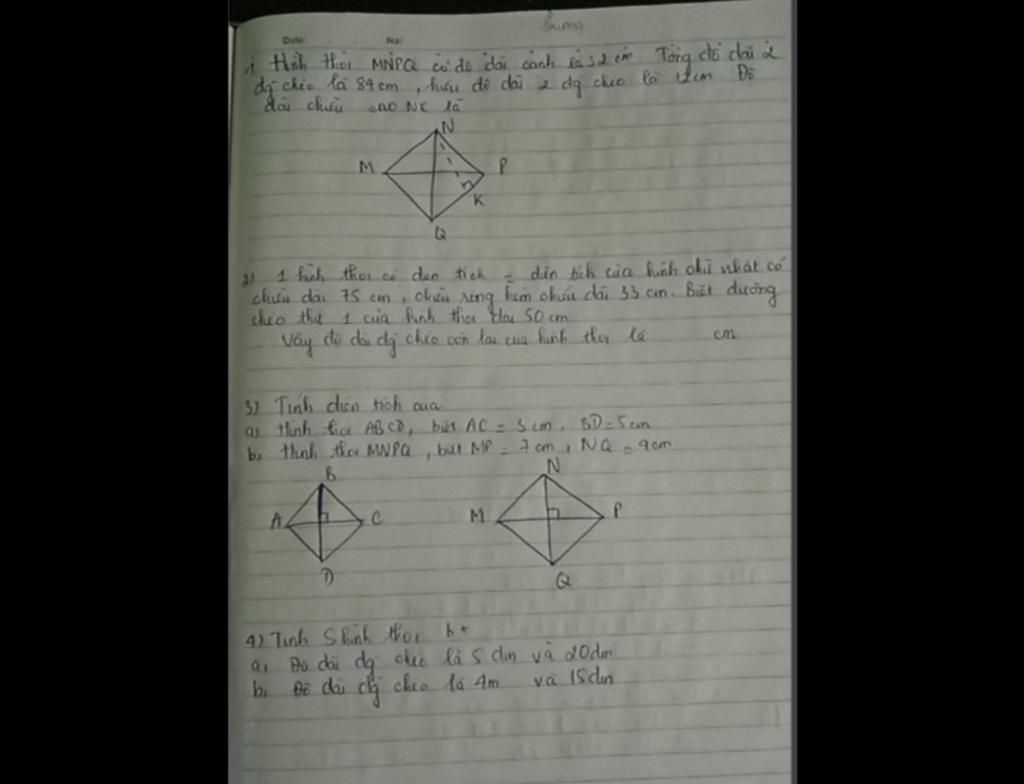 Date: No:
1, Hình thoi MNPQ có độ dài cạnh là 32 cm Tổng độ dài 2
đg chéo là 84cm, hiệu độ dài 2 đg chéo là 12cm Độ
dài chiều cao NK là
N
M
P
K
Q
2) 1 hình thoi có diện tích = diện tích của hình chữ nhật có
chiều dài 75 cm, chiều rộng kém chiều dài 33 cm. Biết đường
chéo thứ 1 của hình thoi dài 50 cm
Vậy độ dài đg chéo còn lại của hình thoi là cm
3) Tính diện tích của
a) Hình thoi ABCD, biết AC = 3 cm, BD = 5 cm
b, Hình thoi MNPQ, biết MP = 7 cm, NQ = 4cm
B
A
C
D
N
M
P
Q
4) Tính S hình thoi bt
a, Độ dài đg chéo là 5 dm và 20dm
b, Độ dài đg chéo là 4m và 15dm